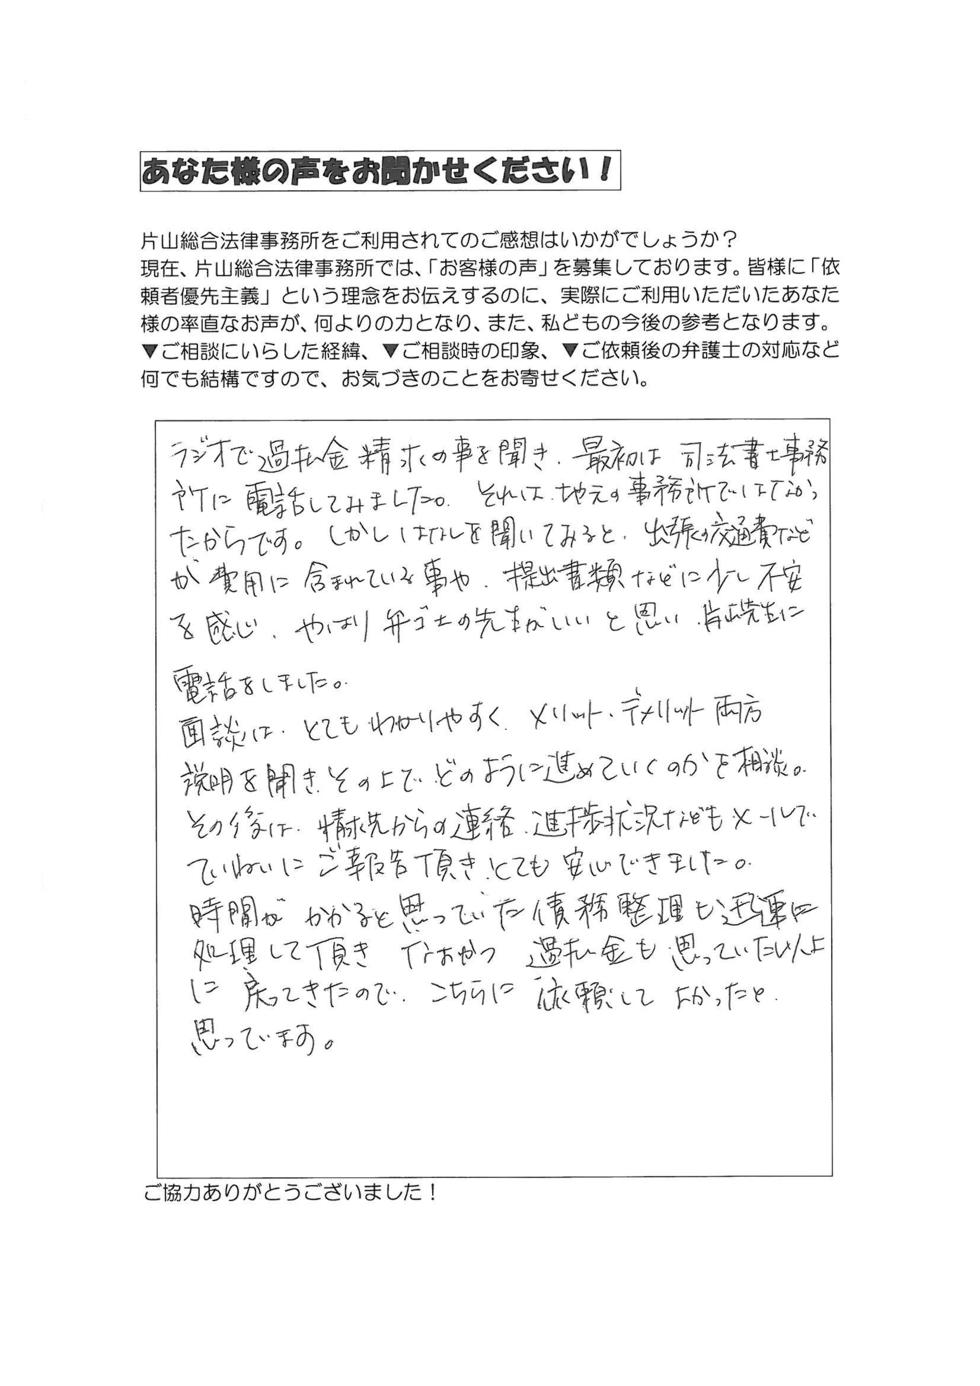 あなた様の声をお聞かせください！
片山総合法律事務所をご利用されてのご感想はいかがでしょうか？
現在、片山総合法律事務所では、「お客様の声」を募集しております。皆様に「依
頼者優先主義」という理念をお伝えするのに、実際にご利用いただいたあなた
様の率直なお声が、何よりの力となり、また、私どもの今後の参考となります。
▼ご相談にいらした経緯、▼ご相談時の印象、▼ご依頼後の弁護士の対応など
何でも結構ですので、お気づきのことをお寄せください。
ラジオで過払金精求の事を聞き、最初は司法書士事務
所に電話してみました。それは、地元の事務所ではなかっ
たからです。しかしはなしを聞いてみると、出張の交通費など
が費用に含まれている事や、提出書類などに少し不安
を感じ、やはり弁ゴ士の先生がいいと思い、片山先生に
電話をしました。
面談は、とてもわかりやすく、メリット・デメリット両方
説明を聞き、その上でどのように進めていくのかを相談。
その後は、精求先からの連絡、進捗状況などもメールで
ていねいにご報告頂き、とても安心できました。
時間がかかると思っていた債務整理も迅速に
処理して頂き なおかつ 過払金も思っていたいじょう
に戻ってきたので、こちらに依頼してよかったと
思っています。
ご協力ありがとうございました！